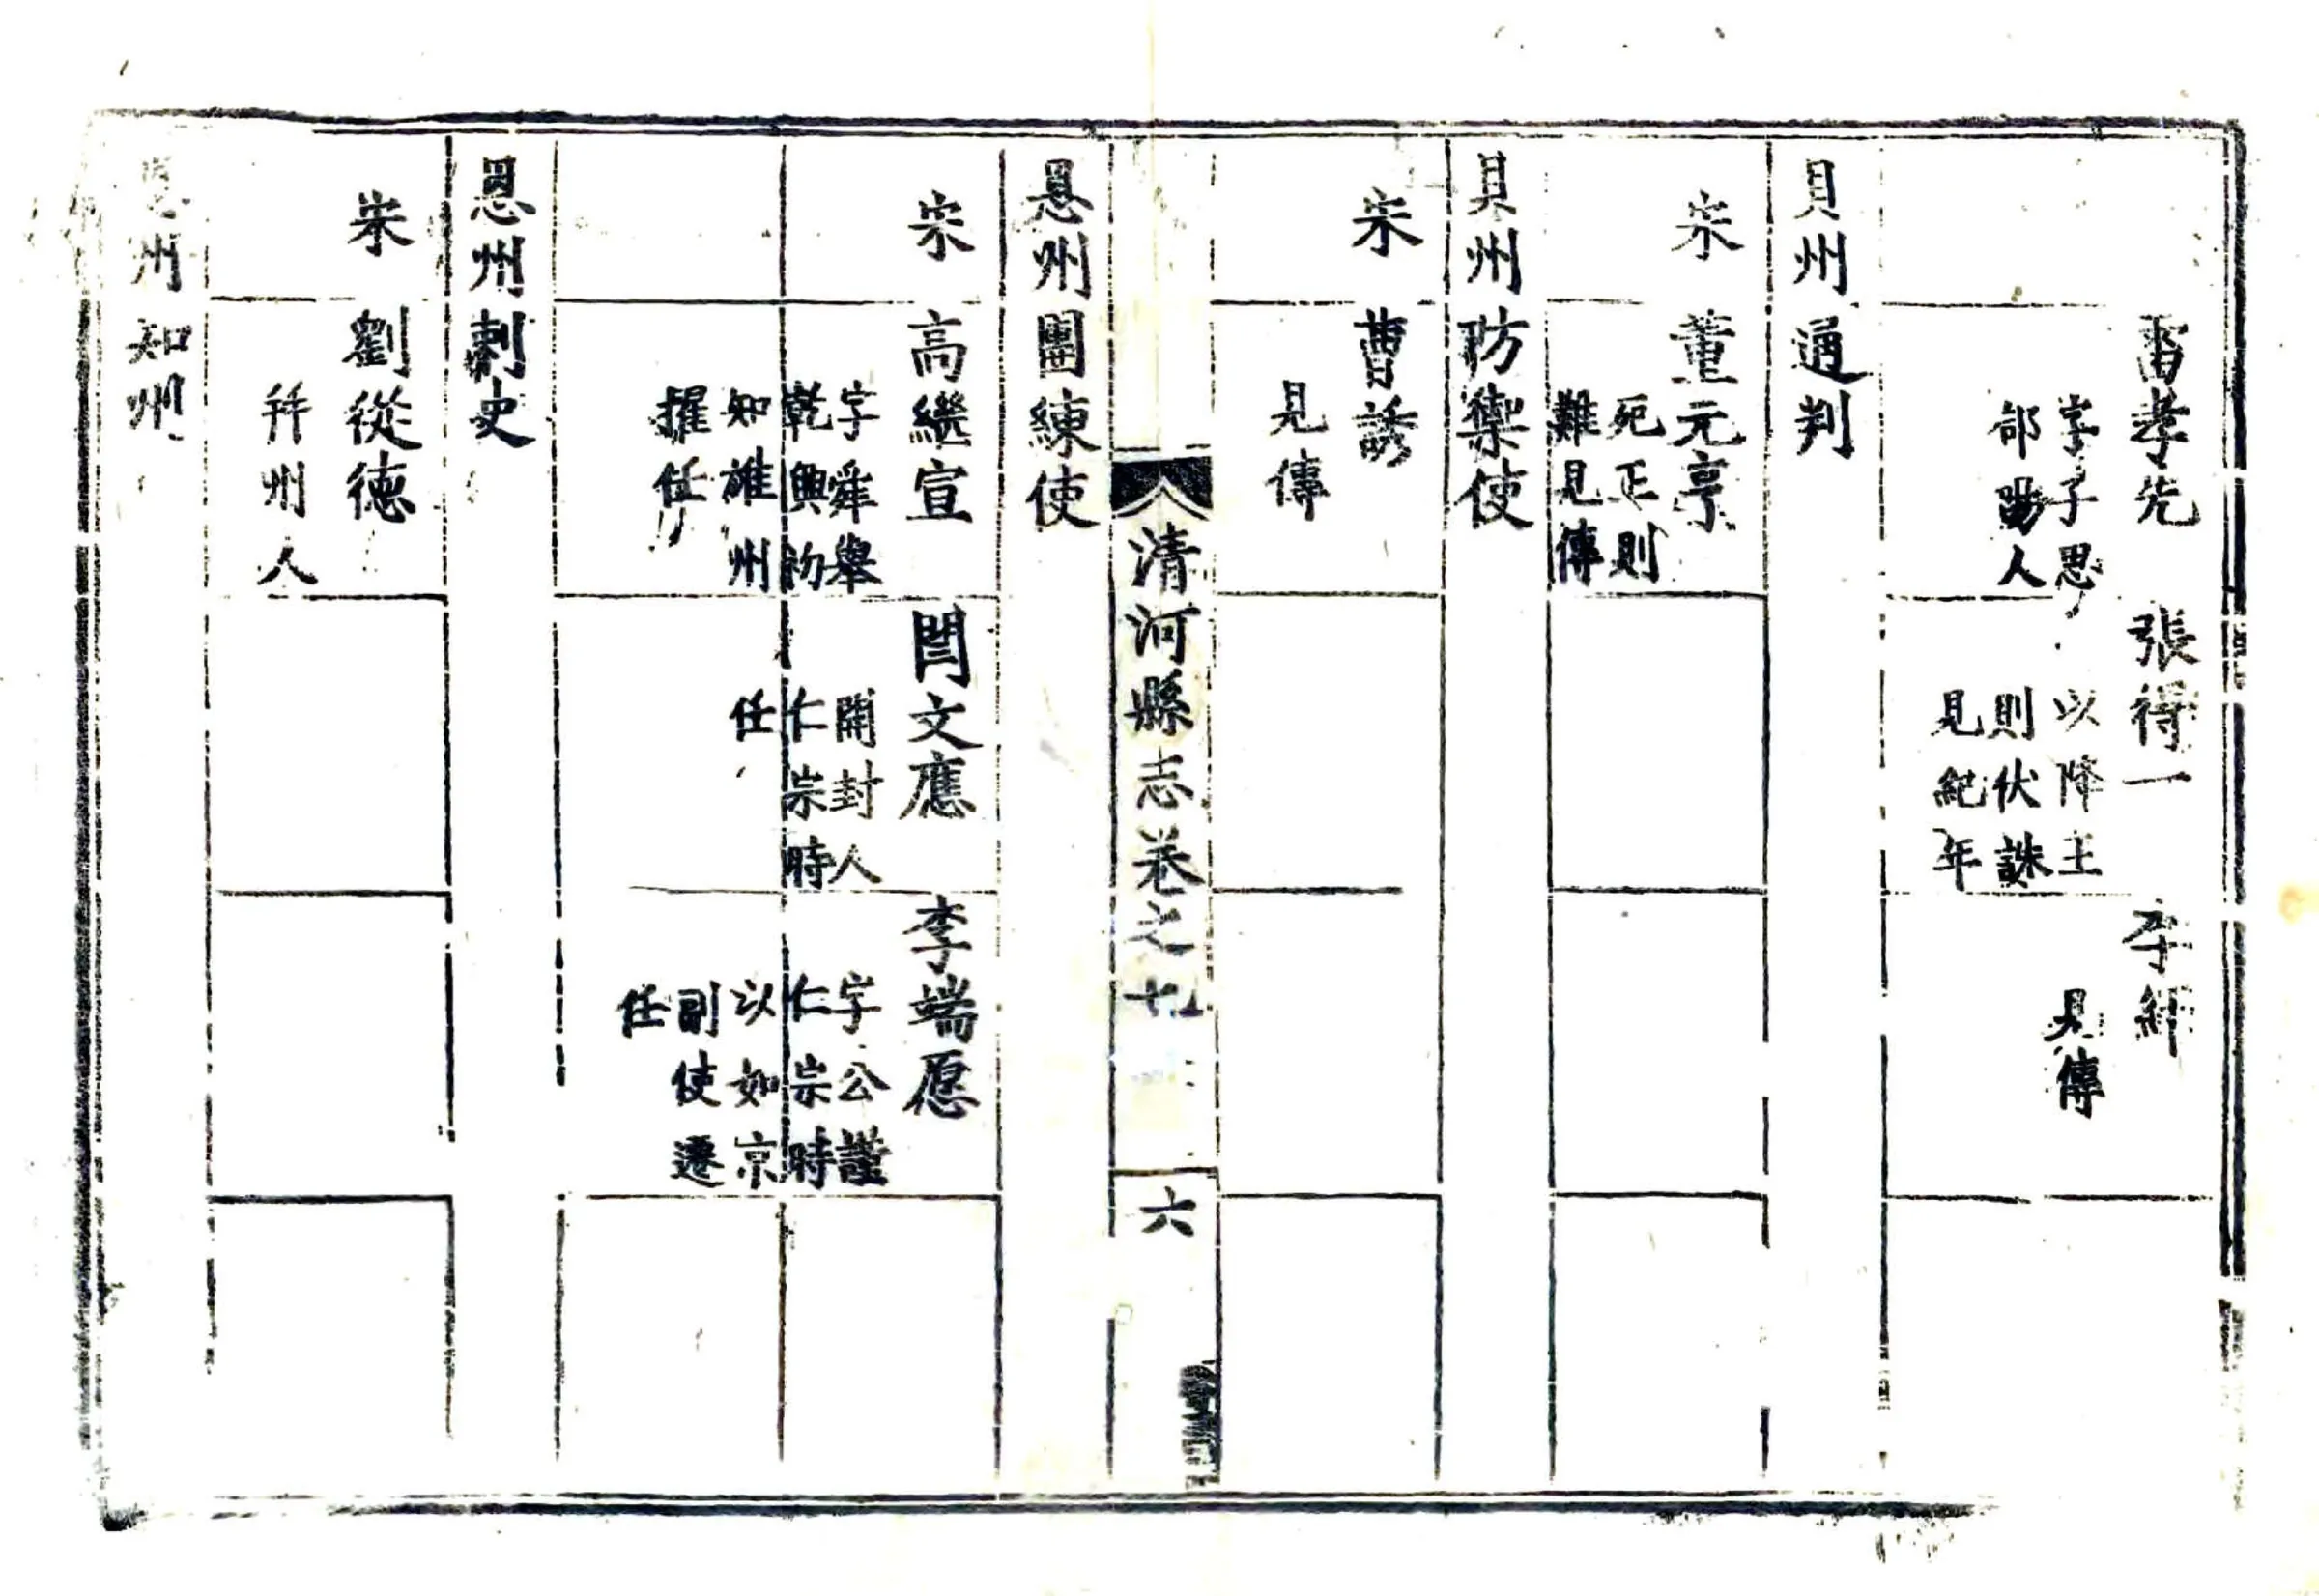 雷孝先
字子思
郃陽人
張得一
以降王
則伏誅
見紀年
李絳
見傳
貝州通判
宋
董元亨
死王則
難見傳
貝州防禦使
宋
曹誘
見傳
清河縣志卷之九
六
恩州團練使
宋
高繼宣
字舜舉
乾興初
知雄州
擢任
閻文應
開封人
仁宗時
任
李端愿
字公謹
仁宗時
以如京
副使遷
任
恩州刺史
宋
劉從德
幷州人
恩州知州